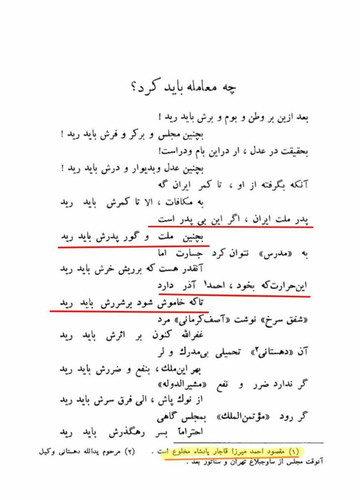 چه معامله باید کرد؟
بعد ازین بر وطن و بوم و برش باید رید !
بچنین مجلس و برکر و فرش باید رید !
بحقیقت در عدل ، ار دراین بام ودراست!
بچنین عدل وبدیوار و درش باید رید !
آنکه بگرفته از او ، تا کمر ایران گه
به مکافات ، الا تا کمرش باید رید
پدر ملت ایران ، اگر این بی پدر است
بچنین ملت و گور پدرش باید رید
به «مدرس» نتوان کرد جسارت اما
آنقدر هست که برریش خرش باید رید
این حرارت که بخود ، احمد۱ آذر دارد
تاکه خاموش شود برشررش باید رید
«شفق سرخ» نوشت «آصف کرمانی» مرد
غفرالله کنون بر اثرش باید رید
آن «دهستانی۲» تحمیلی بی‌مدرك و لر
بهر این‌ملك، بنفع و ضررش باید رید
گر ندارد ضرر و نفع «مشیرالدوله»
از نوك پاش ، الی فرق سرش باید رید
گر رود «مؤتمن‌الملك» بمجلس گاهی
احتراماً بسر رهگذرش باید رید
(۱) مقصود احمد میرزا قاجار پادشاه مخلوع است . (۲) مرحوم یدالله دهستانی وکیل
آنوقت مجلس از ساوجبلاغ تهران و سناتور بعد .